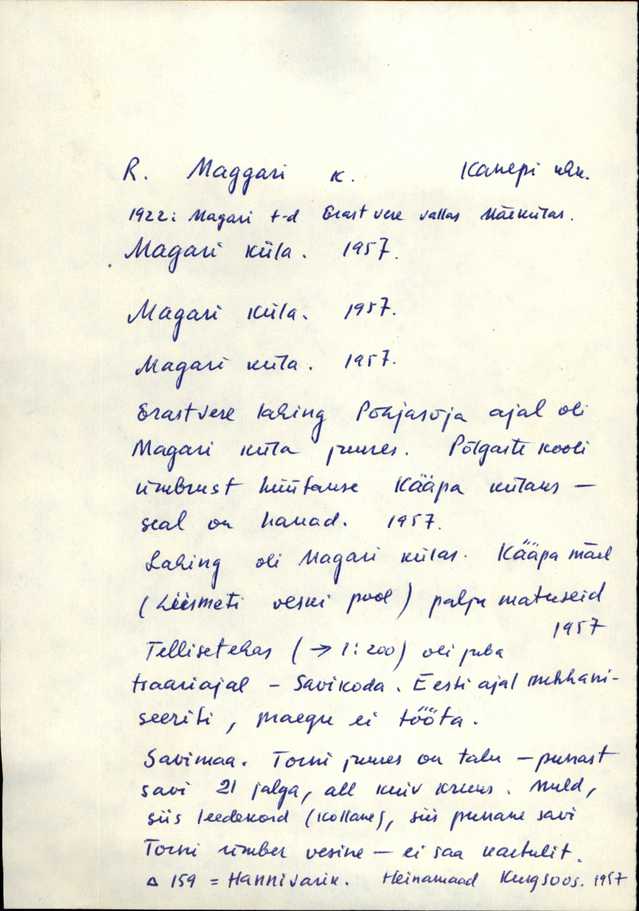 R. Maggari k. Kanepi khk.
1922: Magari t-d Erastvere vallas Mäekülas.
Magari küla. 1957.
Magari küla. 1957.
Magari küla. 1957.
Erastvere lahing Põhjasõja ajal oli
Magari küla juures. Põlgaste kooli
ümbrust hüütakse Kääpa külaks –
seal on hauad. 1957.
Lahing oli Magari külas. Kääpa mäel
( veski pool) palju matuseid
1957
Tellisetehas (→ 1:200) oli juba
tsaariajal – Savikoda. Eesti ajal mehhani-
seeriti, praegu ei tööta.
Savimaa. Torni juures on talu – punast
savi 21 jalga, all kuiv kruus. Muld,
siis leedekord (kollane), siis punane savi
Torni ümber vesine – ei saa kartulit.
Δ 159 = Hannivarik. Heinamaad Kurgsoos. 1957